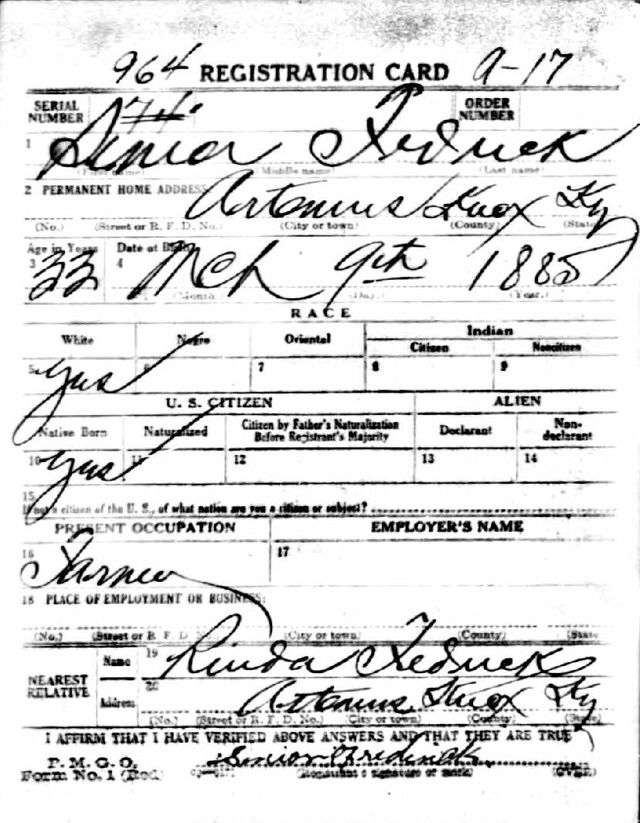 964 REGISTRATION CARD A-17
SERIAL NUMBER 74 ORDER NUMBER
1 Senior Fedrick
(First name) (Middle name) (Last name)
2 PERMANENT HOME ADDRESS Artemus Knox Ky
(No.) (Street or R. F. D. No.) (City or town) (County) (State)
Age in Years Date of Birth
3 33 4 Mch 9th 1885
(Month.) (Day.) (Year.)
RACE
White Negro Oriental Indian
Citizen Noncitizen
5 Yes 6 7 8 9
U. S. CITIZEN ALIEN
Native Born Naturalized Citizen by Father's Naturalization Before Registrant's Majority Declarant Non-declarant
10 Yes 11 12 13 14
15
If not a citizen of the U. S., of what nation are you a citizen or subject?
PRESENT OCCUPATION EMPLOYER'S NAME
16 Farmer 17
18 PLACE OF EMPLOYMENT OR BUSINESS:
(No.) (Street or R. F. D. No.) (City or town) (County) (State)
NEAREST RELATIVE Name 19 Rinda Fedrick
Address 20 Artemus Knox Ky
(No.) (Street or R. F. D. No.) (City or town) (County) (State)
I AFFIRM THAT I HAVE VERIFIED ABOVE ANSWERS AND THAT THEY ARE TRUE
P. M. G. O.
Form No. 1 (Red) Senior Fredrick
(Registrant's signature or mark) (OVER)